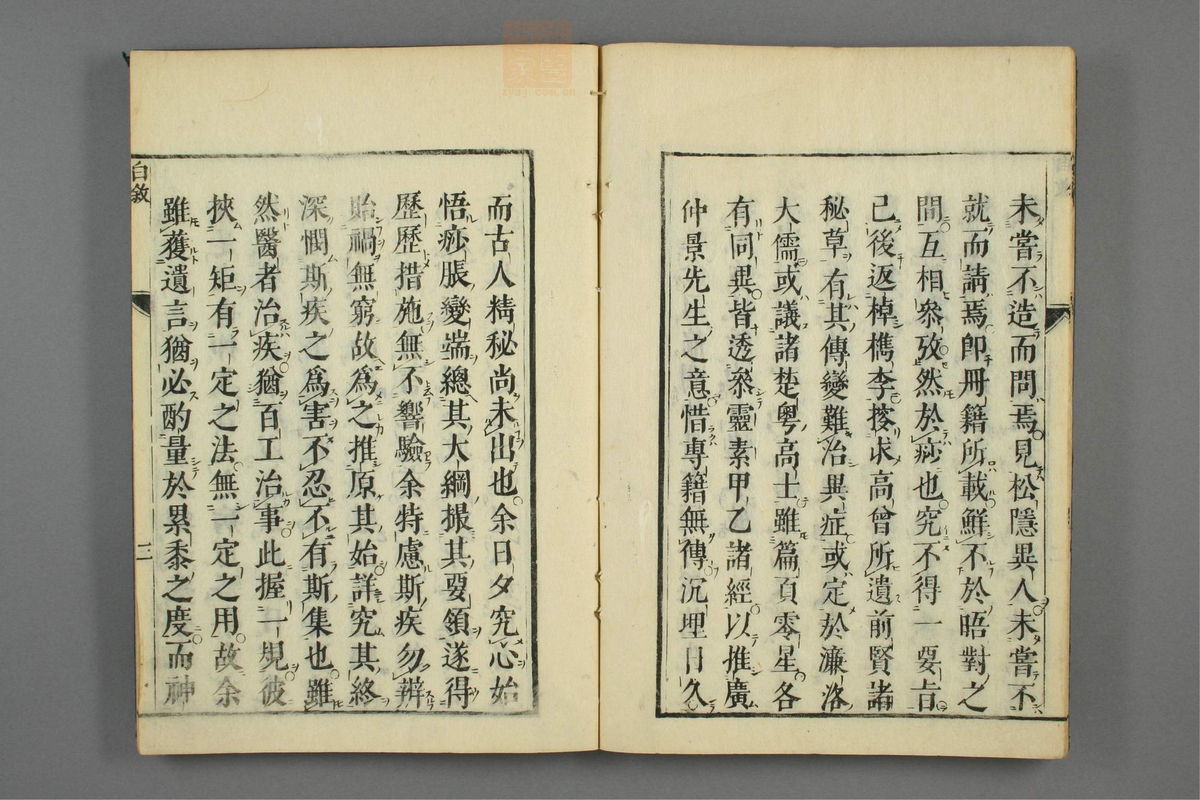 未嘗不造而問焉見松隱異人未嘗不
就而請焉卽冊籍所載鮮不於晤對之
間互相叅攷然於痧也究不得一要旨
己後返棹檇李搜求高曾所遺前賢諸
秘草有其傳變難治異症或定於濂洛
大儒或議諸楚粤高士雖篇頁零星各
有同異皆透叅靈素甲乙諸經以推廣
仲景先生之意惜專籍無傳沉埋日久
而古人精秘尚未出也余日夕究心始
悟痧脹變端總其大綱撮其要領遂得
歷歷措施無不響驗余特慮斯疾勿辨
貽禍無窮故爲之推原其始詳究其終
深憫斯疾之爲害不忍不有斯集也雖
然醫者治疾猶百工治事此握一規彼
挾一矩有一定之法無一定之用故余
雖獲遺言猶必酌量於累黍之度而神
自敘
二